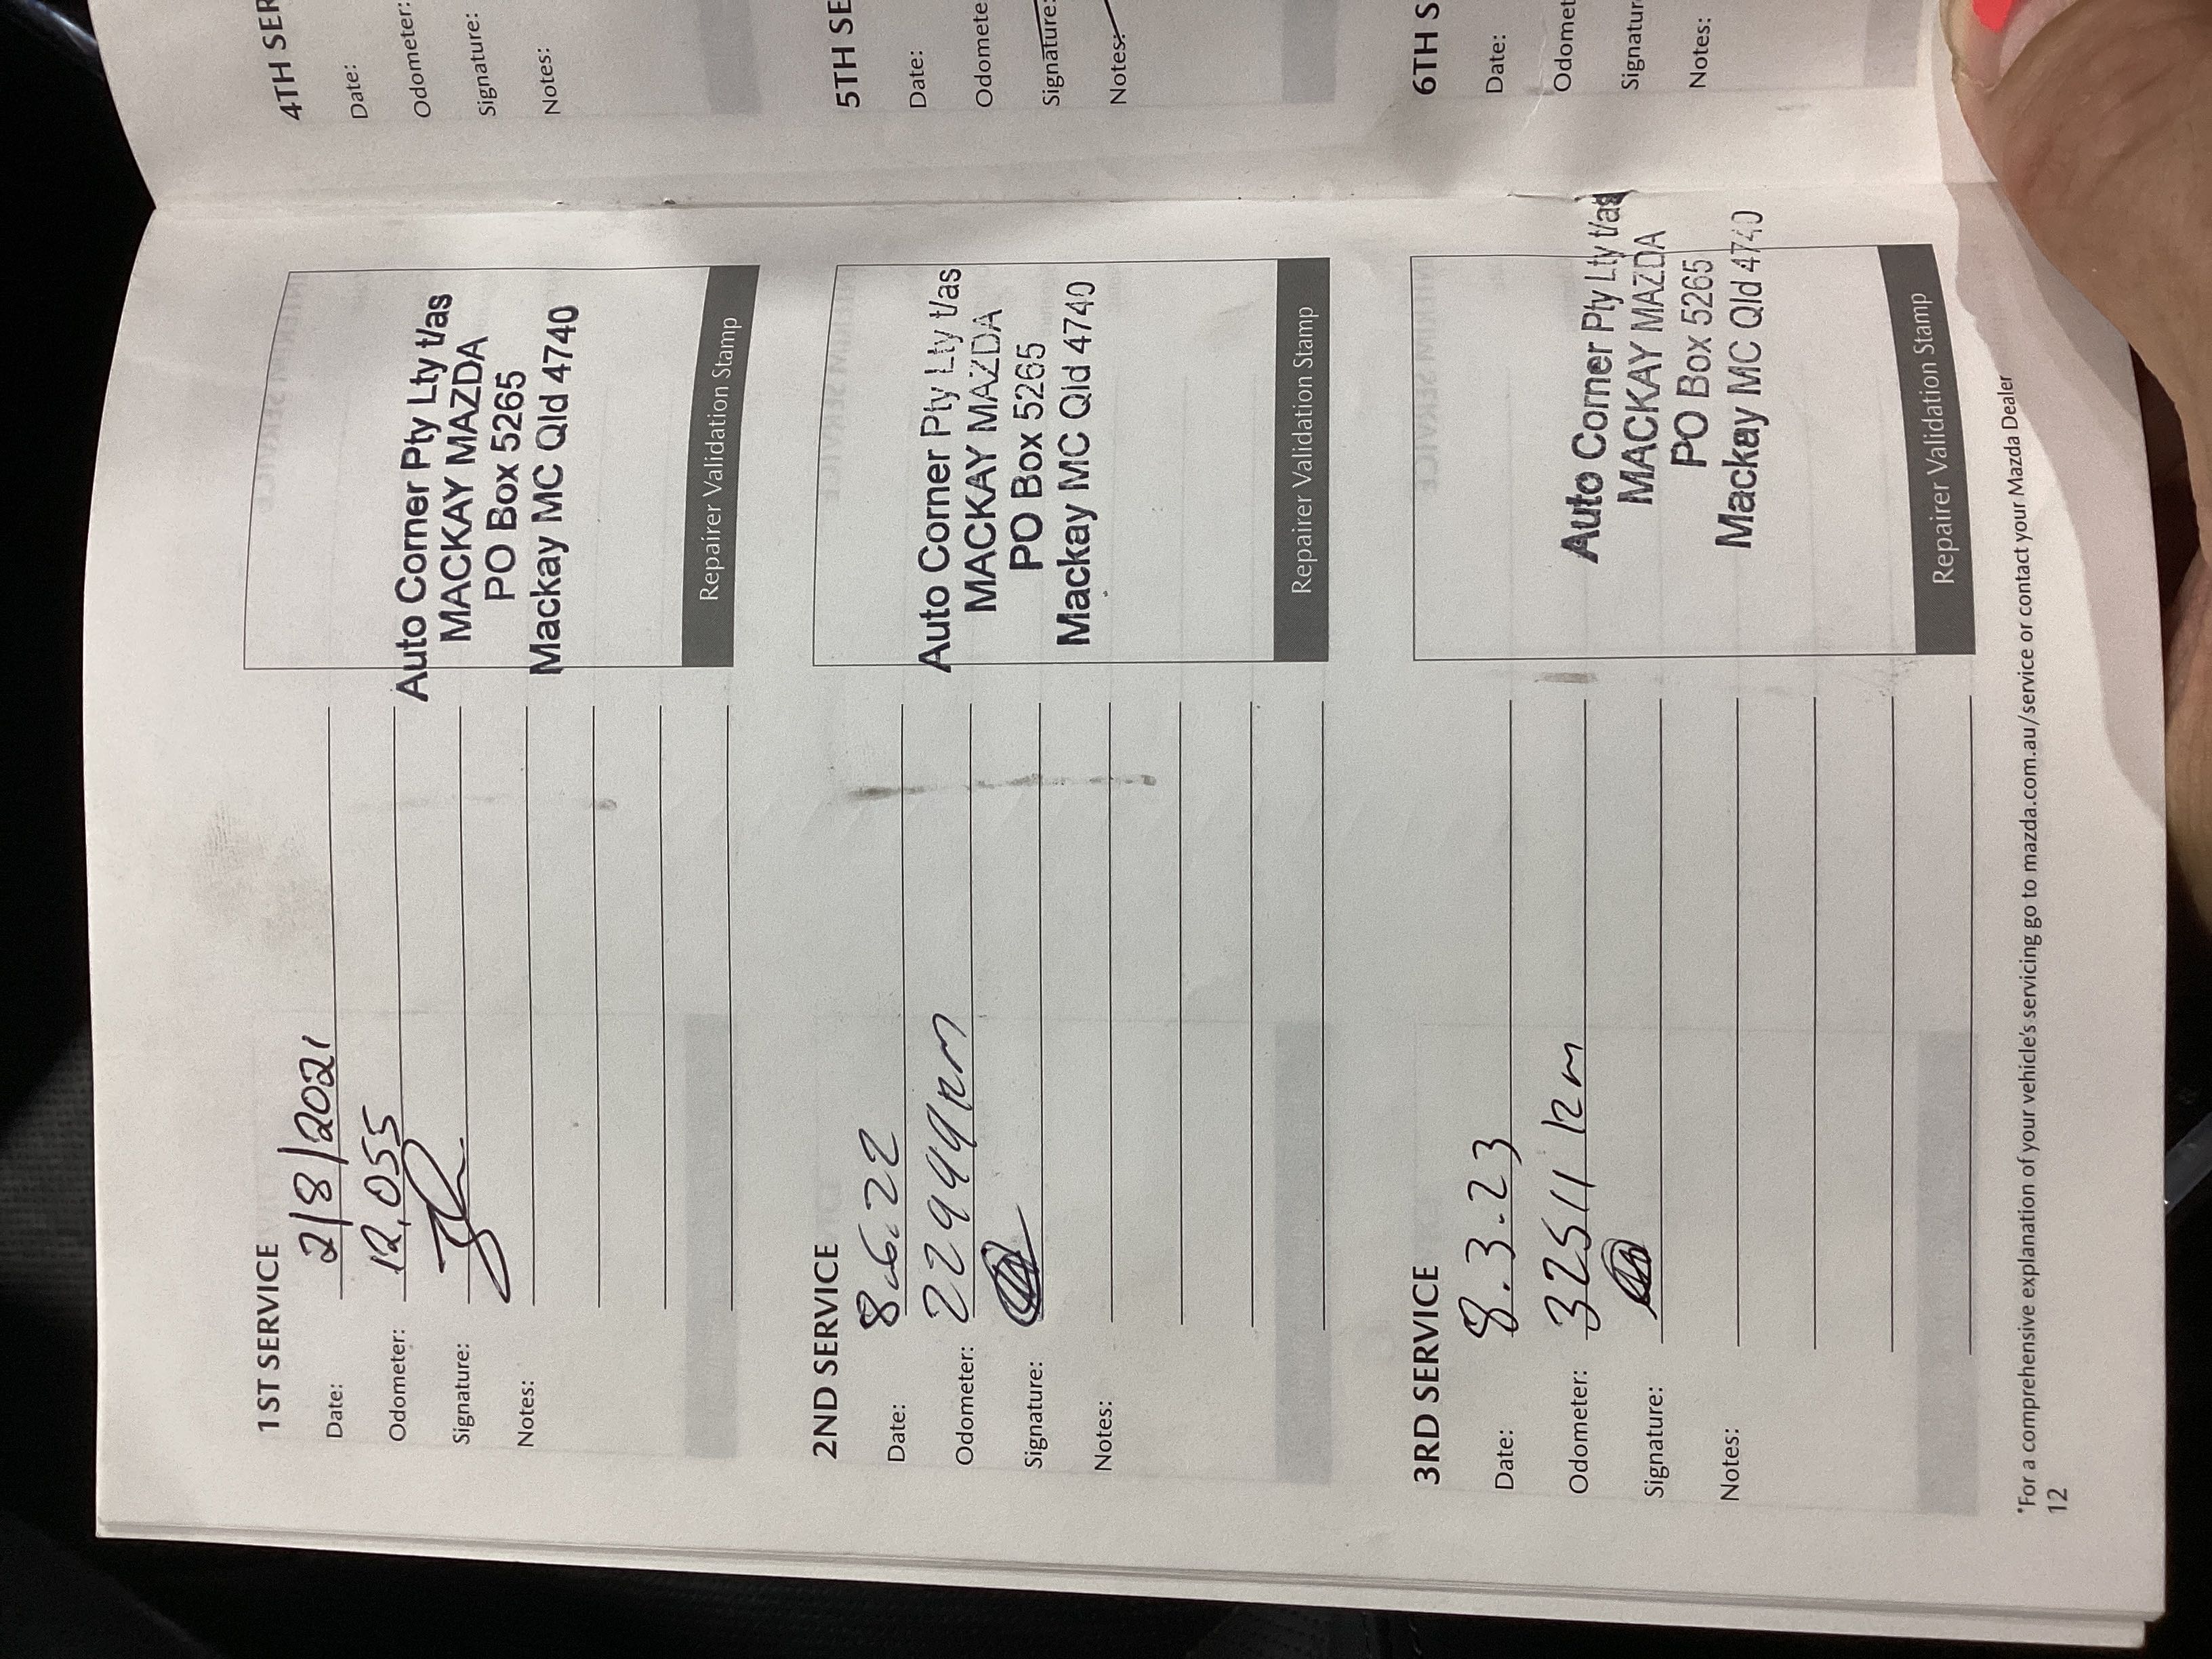 1ST SERVICE
Date: 2/8/2021
Odometer: 12,055
Signature:
Notes:
Auto Corner Pty Lty t/as
MACKAY MAZDA
PO Box 5265
Mackay MC Qld 4740
Repairer Validation Stamp
2ND SERVICE
Date: 8.6.22
Odometer: 22999km
Signature:
Notes:
Auto Corner Pty Lty t/as
MACKAY MAZDA
PO Box 5265
Mackay MC Qld 4740
Repairer Validation Stamp
3RD SERVICE
Date: 8.3.23
Odometer: 32511 km
Signature:
Notes:
Auto Corner Pty Lty t/as
MACKAY MAZDA
PO Box 5265
Mackay MC Qld 4740
Repairer Validation Stamp
*For a comprehensive explanation of your vehicle's servicing go to mazda.com.au/service or contact your Mazda Dealer
12
4TH SER
Date:
Odometer:
Signature:
Notes:
5TH SE
Date:
Odomete
Signature:
Notes:
6TH S
Date:
Odomet
Signatur
Notes: